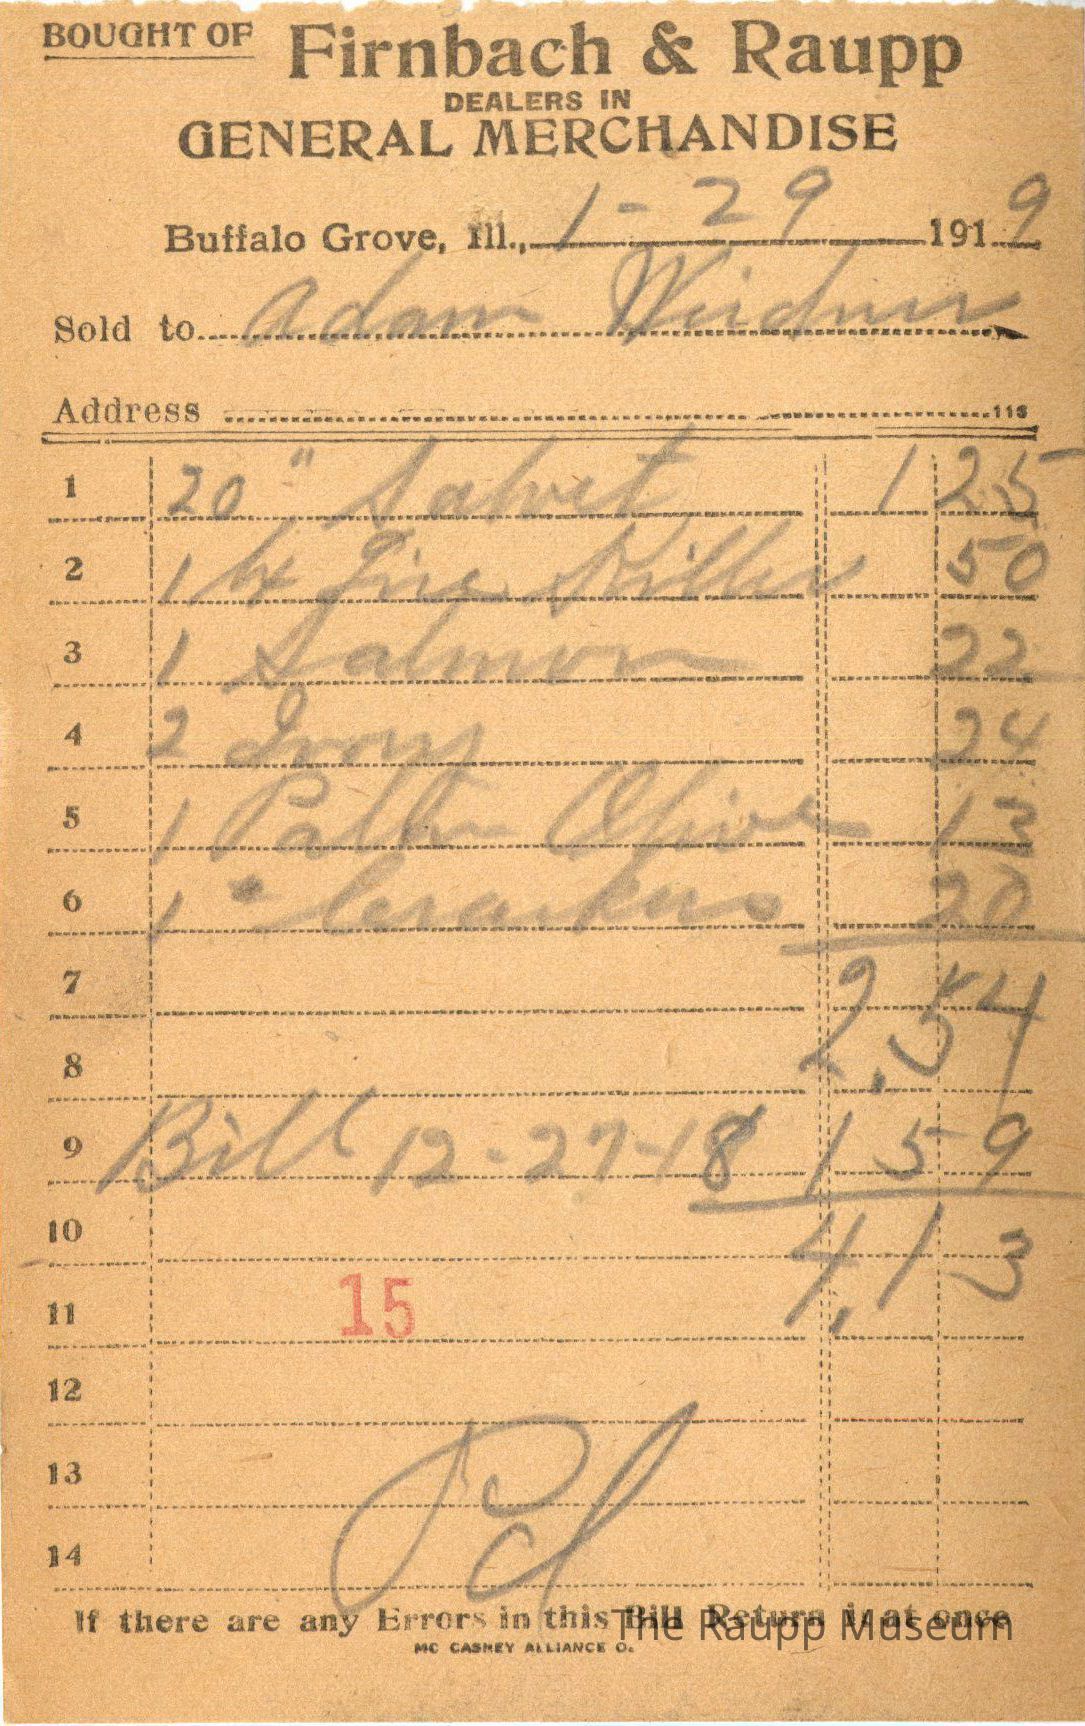 BOUGHT OF Firnbach & Raupp
DEALERS IN
GENERAL MERCHANDISE
Buffalo Grove, Ill., 1-29 1919
Sold to Adam Weidner
Address 113
1 20 " 1 25
2 1 Killer 50
3 1 Salmon 22
4 2 24
5 1 Palm Olive 13
6 1 " Crackers 20
7 2,54
8
9 Bill 12-27-18 1 59
10 4,13
11 15
12
13
Pd
14
If there are any Errors in this Bill Return it at once
The Raupp Museum
MC CASKEY ALLIANCE O.